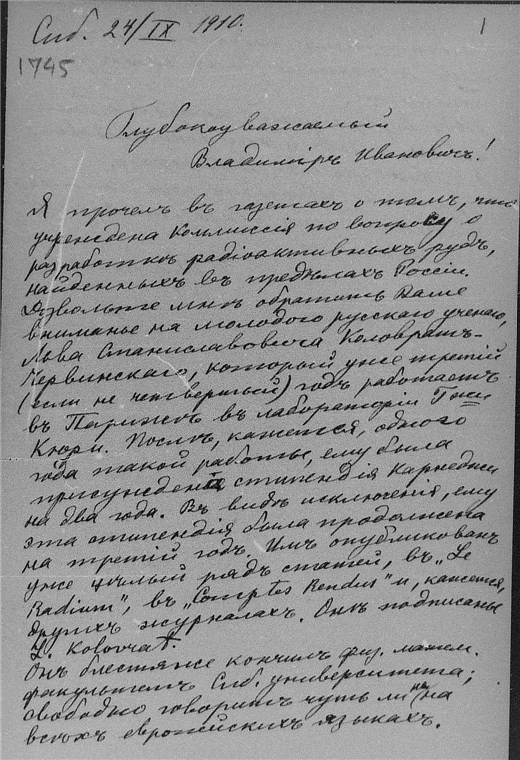 Спб. 24/IX 1910.
1
1745
Глубокоуважаемый
Владимiръ Ивановичъ!
Я прочелъ въ газетахъ о томъ, что
учреждена Коммиссiя по вопросу о
разработкѣ радiоактивныхъ рудъ,
найденныхъ въ предѣлахъ Россiи.
Дозвольте мнѣ обратить Ваше
вниманье на молодого русскаго ученаго,
Льва Станиславовича Коловратъ-
Червинскаго, который уже третiй
(если не четвертый) годъ работаетъ
въ Парижѣ въ лабораторiи Гжи
Кюри. Послѣ, кажется, одного
года такой работы, ему была
присуждена стипендiя Карнеджи
на два года. Въ видѣ исключенiя, ему
эта стипендiя была продолжена
на третiй годъ. Имъ опубликованъ
уже цѣлый рядъ статей, въ „Le
Radium", въ „Comptes Rendus" и, кажется,
другихъ журналахъ. Онѣ подписаны
L. Kolovrat.
Онъ блестяще кончилъ физ. матем.
факультетъ Спб. университета;
свободно говоритъ чуть ли не на
всѣхъ европейскихъ языкахъ.